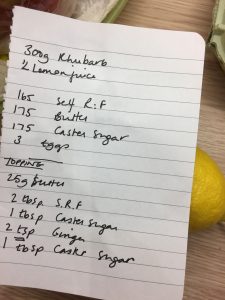 300g Rhubarb
½ Lemon juice
165 Self R.F
175 Butter
175 Caster Sugar
3 eggs
TOPPING
25g Butter
2 tbsp S.R.F
1 tbsp Caster Sugar
2 tsp Ginger
1 tbsp Caster Sugar